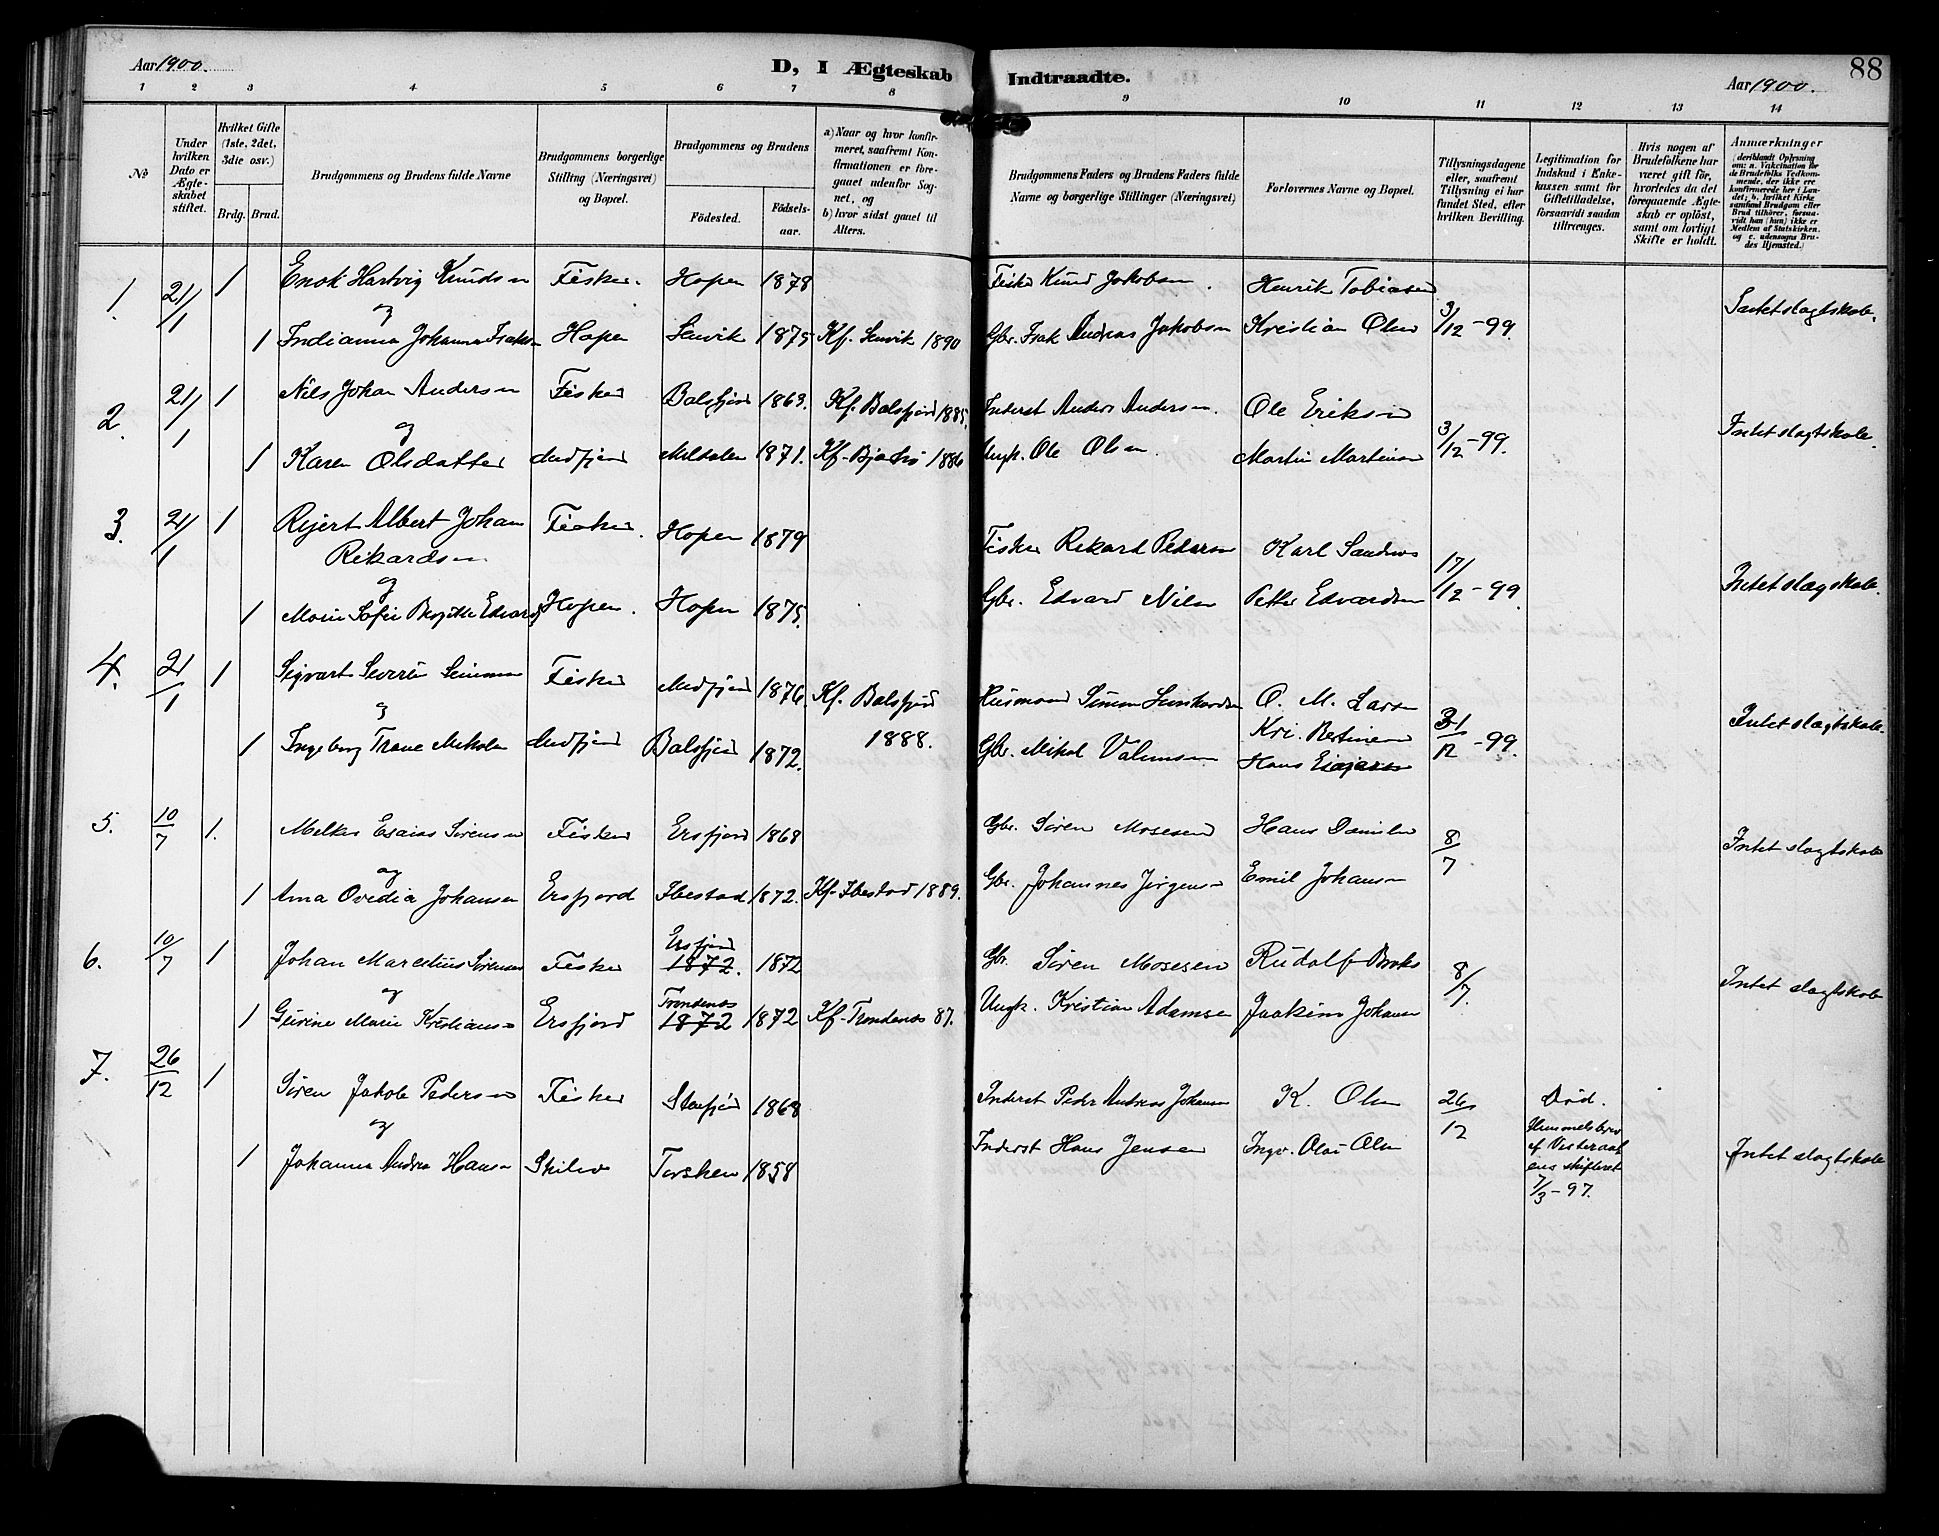 Aar 1900.
D, I Ægteskab Indtraadte.
Aar 1900.
88
1 2 3 4 5 6 7 8 9 10 11 12 13 14
No
Under hvilken Dato er Ægteskabet stiftet.
Hvilket Gifte (1ste, 2det, 3die osv.)
Brdg. Brud.
Brudgommens og Brudens fulde Navne
Brudgommens borgerlige Stilling (Næringsvei) og Bopæl.
Brudgommens og Brudens
Fødested.
Fødsels-aar.
a) Naar og hvor konfirmeret, saafremt Konfirmationen er foregaaet udenfor Sognet, og
b) hvor sidst gaaet til Alters.
Brudgommens Faders og Brudens Faders fulde Navne og borgerlige Stillinger (Næringsvei)
Forlovernes Navne og Bopæl.
Tillysningsdagene eller, saafremt Tillysning ei har fundet Sted, efter hvilken Bevilling.
Legitimation for Indskud i Enkekassen samt for Giftetilladelse, forsaavidt saadan tiltrænges.
Hvis nogen af Brudefolkene har været gift før, hvorledes da det foregaaende Ægteskab er opløst, samt om lovligt Skifte er holdt.
Anmærkninger
(deriblandt Oplysning om: a. Vakcination for de Brudefolks Vedkommende, der ikke ere konfirmerede her i Landet; b. hvilket Kirkesamfund Brudgom eller Brud tilhører, forsaavidt han (hun) ikke er Medlem af Statskirken. og c. udensogns Brudes Hjemsted.)
1. 21/1 1 Enok Hartvig Knudsen Fisker. Hopen 1878 Fisker Knud Jakobsen. Henrik Tobiasen
og
1 Indianna Johanna Isaksen Hopen Lenvik 1875 Kf. Lenvik 1890 Gbr. Isak Andreas Jakobsen Kristian Olsen 3/12-99. Intet slagtskab.
2. 21/1 1 Nils Johan Andersen Fisker Balsfjord 1863. Kf. Balsfjord 1885. Inderst Anders Andersen. Ole Eriksen
og
1 Karen Olsdatter Medfjord 1871. Kf. 1886 Ungk. Ole Olsen. Martin Martinsen 3/12-99. Intet slagtskab.
3. 21/1 1 Rejert Albert Johan Fisker. Hopen 1879 Fisker Rikard Pedersen Karl
Rikardsen
og
1 Marie Sofie Birgitte Edvards Hopen. Hopen 1875. Gbr. Edvard Nilsen Petter Edvardsen 17/12-99. Intet slagtskab.
4. 21/1 1 Sigvart Severin Simonsen Fisker Medfjord 1876. Kf. Balsfjord Husmand Simon O. M. Larsen
og
1 Ingeborg Trane Mikolsen Medfjord Balsfjord 1872. 1888. Gbr. Mikol Kri. Bertinsen 31/12-99. Intet slagtskab.
Hans
5. 10/7 1. Melkor Esaias Sørensen Fisker Ersfjord 1868 Gbr. Søren Mosesen Hans Danielsen 8/7 Intet slagtskab
og
1 Anna Ovedia Johansen Ersfjord Ibestad 1872. Kf. Ibestad 1889. Gbr. Johannes Jørgensen Emil Johansen
6. 10/7 1 Johan Marcelius Sørensen Fisker Ersfjord 1872. 1872 Gbr. Søren Mosesen Rudolf 8/7. Intet slagtskab
og
1 Gurine Marie Kristiansen Ersfjord Trondenes 1872 1872 Kf. Trondenes 87. Ungk. Kristian Adamsen Joakim Johansen
7. 26/12 1 Søren Jakob Pedersen Fisker 1868 Inderst Peder Andreas Johansen K. Olsen 26/12
og
1 Johanna Andrea Hansen Torsken 1858 Inderst Hans Jensen Ingv. Olai Olsen af Vesteraalens skifteret 7/3-97. Intet slagtskab